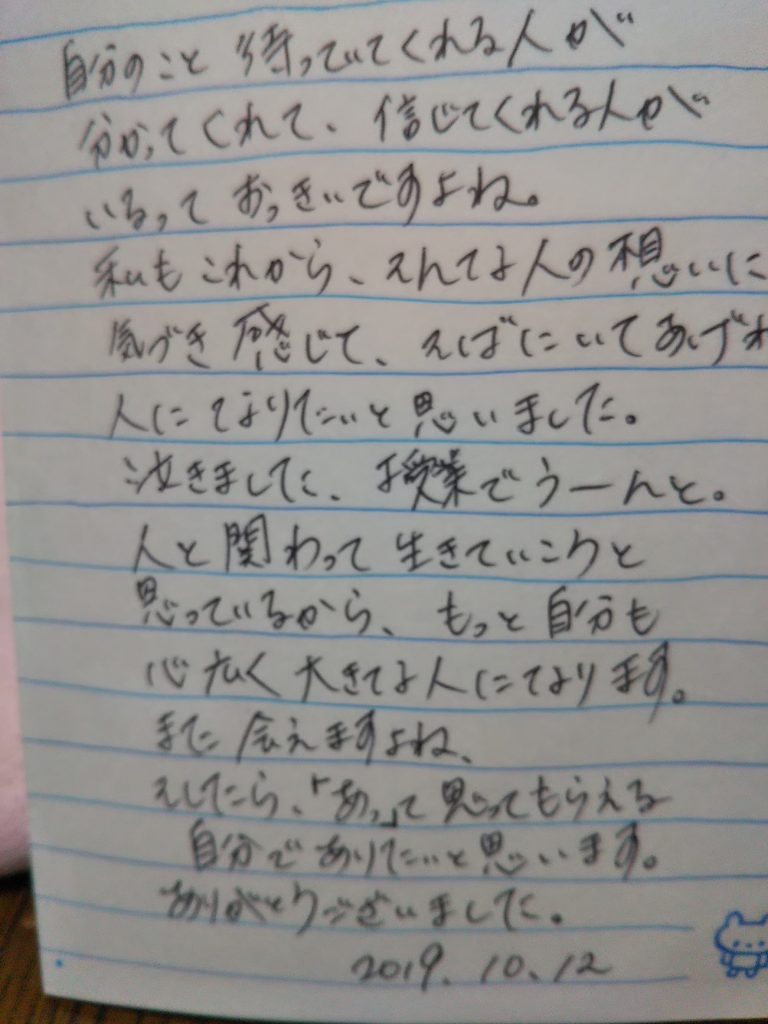 自分のこと 待っていてくれる人が
分かってくれて、信じてくれる人が
いるって おっきいですよね。
私もこれから、そんな人の想いに
気づき 感じて、そばにいてあげれ
人になりたいと思いました。
泣きました、授業でうーんと。
人と関わって生きていこうと
思っているから、もっと自分も
心広く大きな人になります。
また会えますよね、
そしたら、「あっ」て思ってもらえる
自分でありたいと思います。
ありがとうございました。
2019.10.12